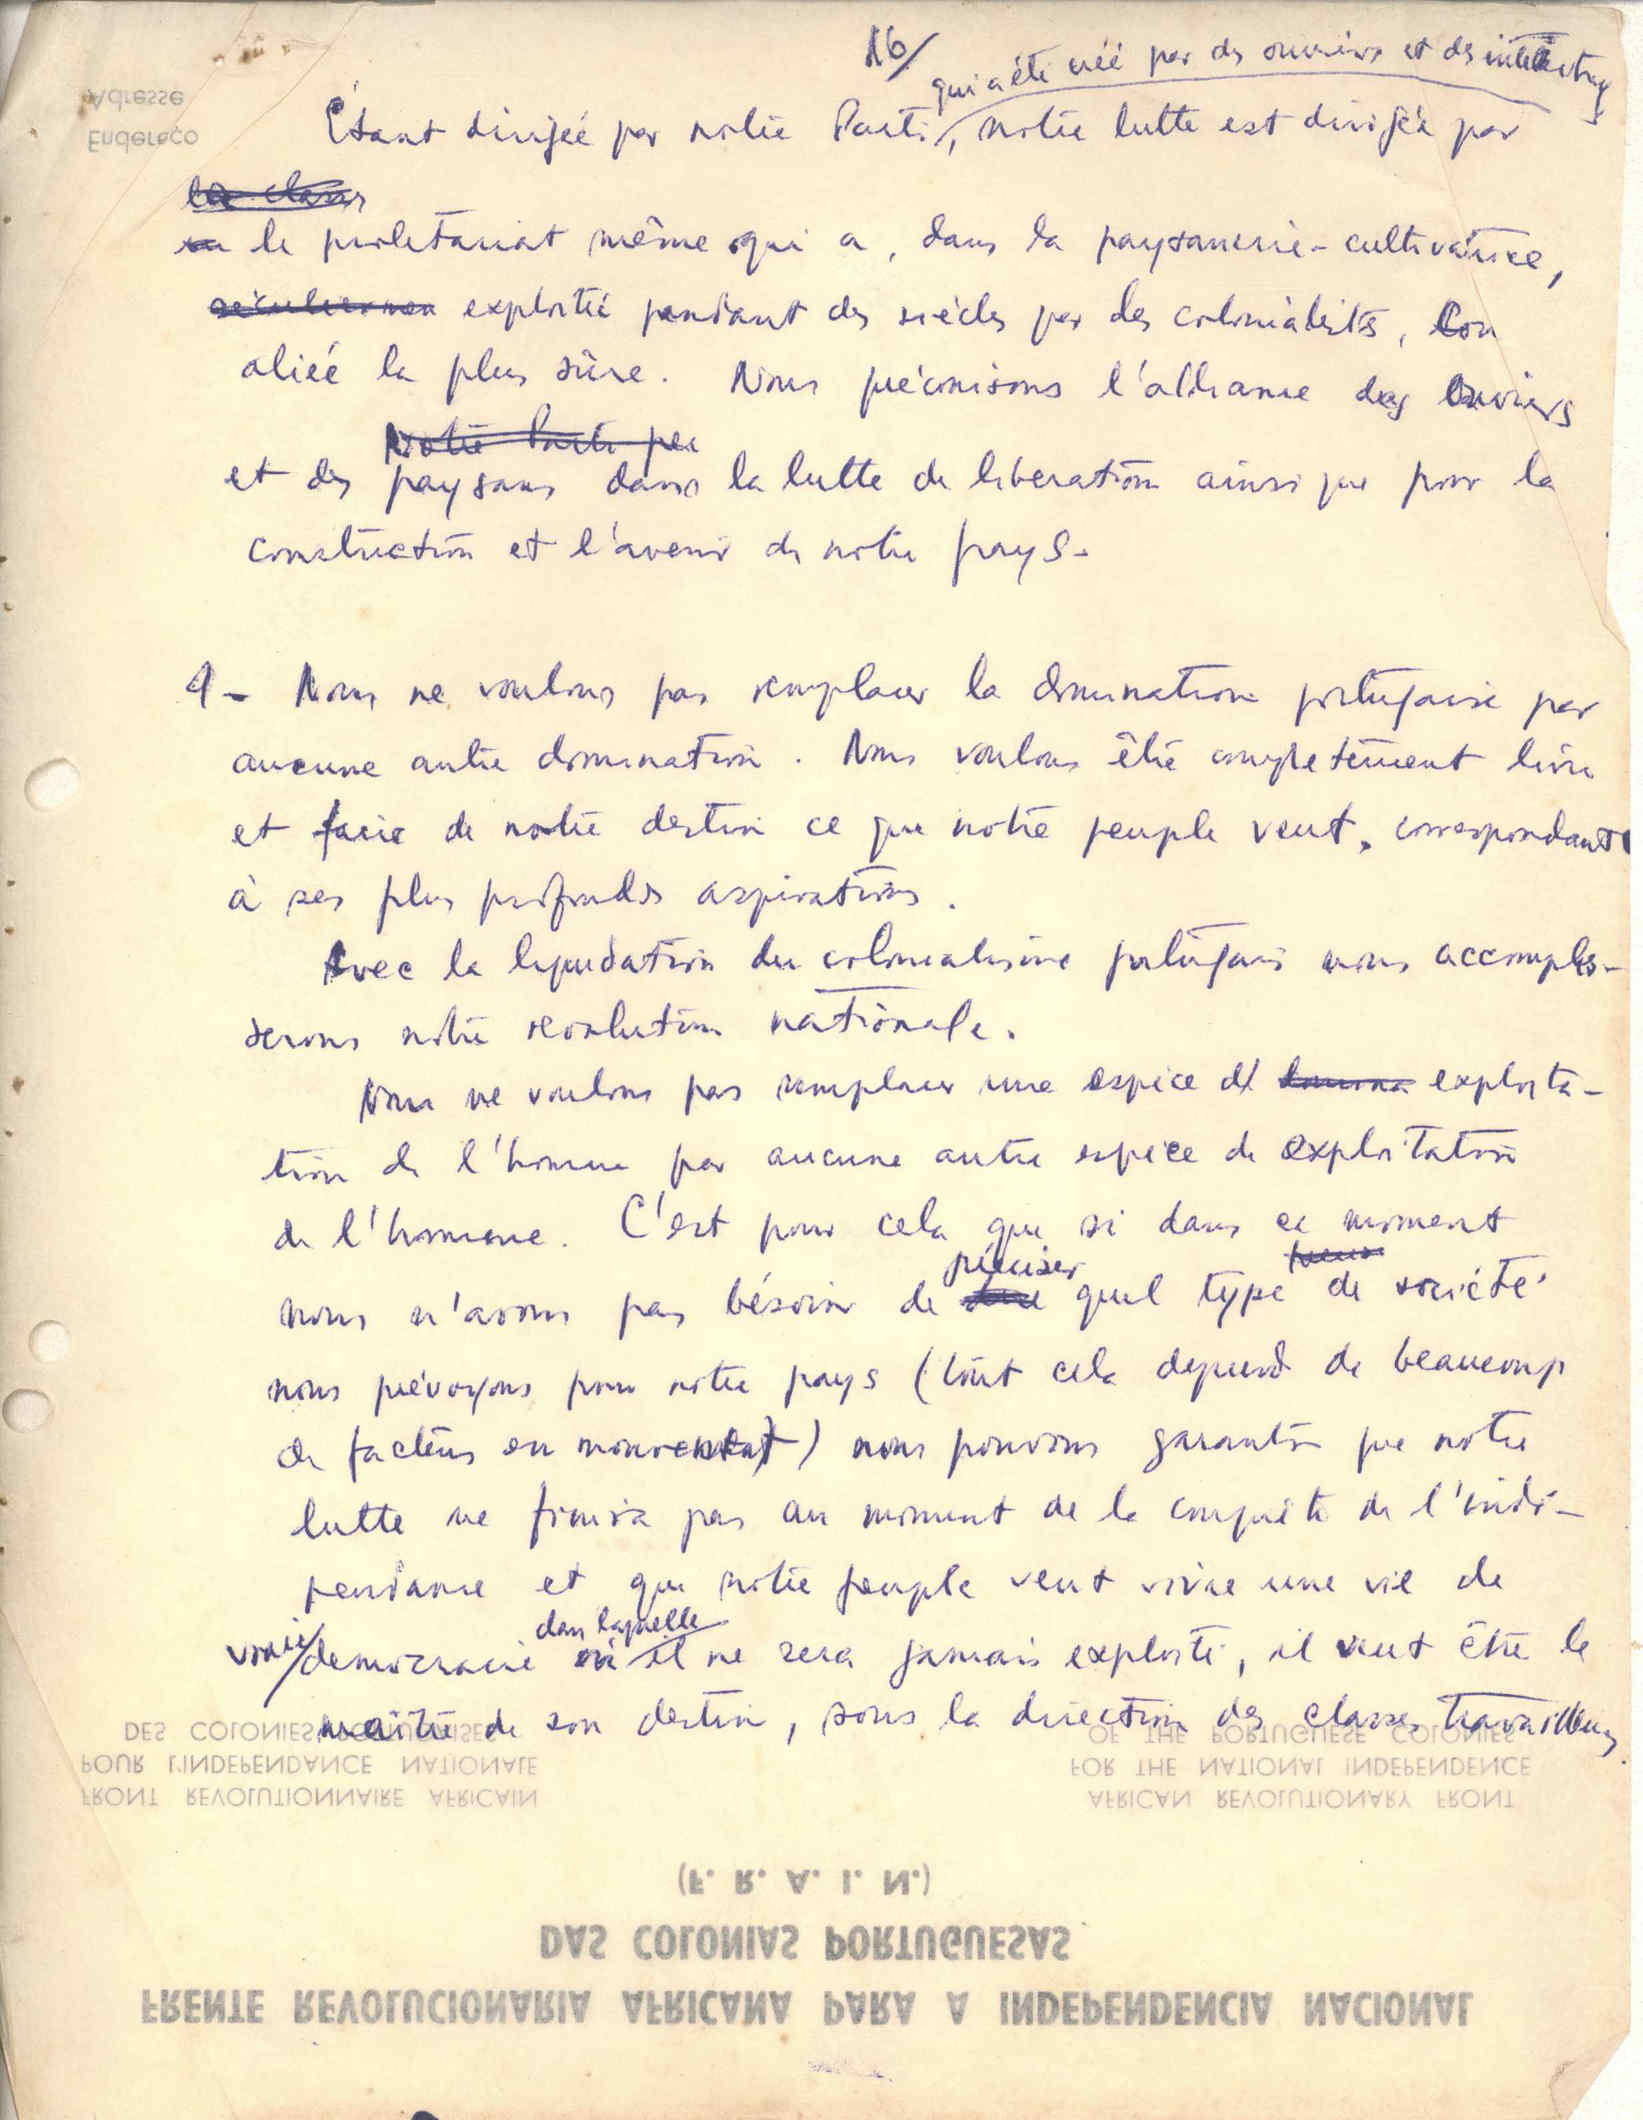 16/
qui a été créé par des ouvriers et des intellectuels
Étant dirigée par notre Parti, notre lutte est dirigée par
la classe
le proletariat même qui a, dans la paysannerie-cultivatrice,
séculairemen exploitée pendant des siècles par les colonialistes, son
aliée la plus sûre. Nous préconisons l'alliance des ouvriers
Notre Parti
et des paysans dans la lutte de libération ainsi que pour la
construction et l'avenir de notre pays.
9- Nous ne voulons pas remplacer la domination portugaise par
aucune autre domination. Nous voulons être completement libre
et faire de notre destin ce que notre peuple veut, correspondant
à ses plus profondes aspirations.
Avec la liquidation du colonialisme portugais nous accomplis-
serons notre revolution nationale.
Nous ne voulons pas remplacer une espèce d' exploita-
tion de l'homme par aucune autre espèce de exploitation
de l'homme. C'est pour cela que si dans ce moment
préciser
nous n'avons pas bésoin de quel type de société
nous prévoyons pour notre pays (tout cela depend de beaucoup
de facteurs en mouvement) nous pouvons garantir que notre
lutte ne finira pas au moment de la conquête de l'indé-
pendance et que notre peuple veut vivre une vie de
vraie democracie dans laquelle il ne sera jamais exploité, il veut être le
maître de son destin, sous la direction des classes travailleuses.
Adresse
Endereço
DES COLONIES PORTUGAISES
POUR L'INDEPENDANCE NATIONALE
FRONT REVOLUTIONNAIRE AFRICAIN
OF THE PORTUGUESE COLONIES
FOR THE NATIONAL INDEPENDENCE
AFRICAN REVOLUTIONARY FRONT
(F. R. A. I. N.)
DAS COLONIAS PORTUGUESAS
FRENTE REVOLUCIONARIA AFRICANA PARA A INDEPENDENCIA NACIONAL